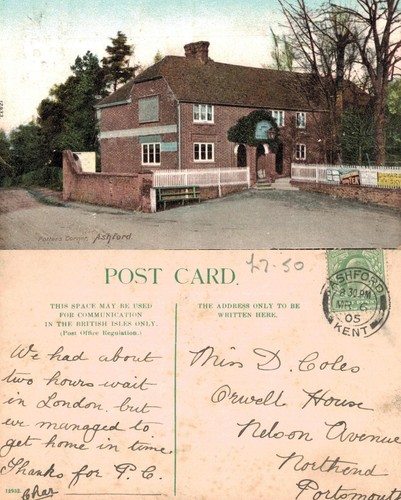 Potter's Corner, Ashford.
£7-50
POST CARD.
THIS SPACE MAY BE USED
FOR COMMUNICATION
IN THE BRITISH ISLES ONLY.
(Post Office Regulation.)
THE ADDRESS ONLY TO BE
WRITTEN HERE.
ASHFORD
8 30 PM
05
KENT
We had about
two hours wait
in London, but
we managed to
get home in time
Thanks for P.C.
Char
Miss D. Coles
Orwell House
Nelson Avenue
Northend
Portsmouth